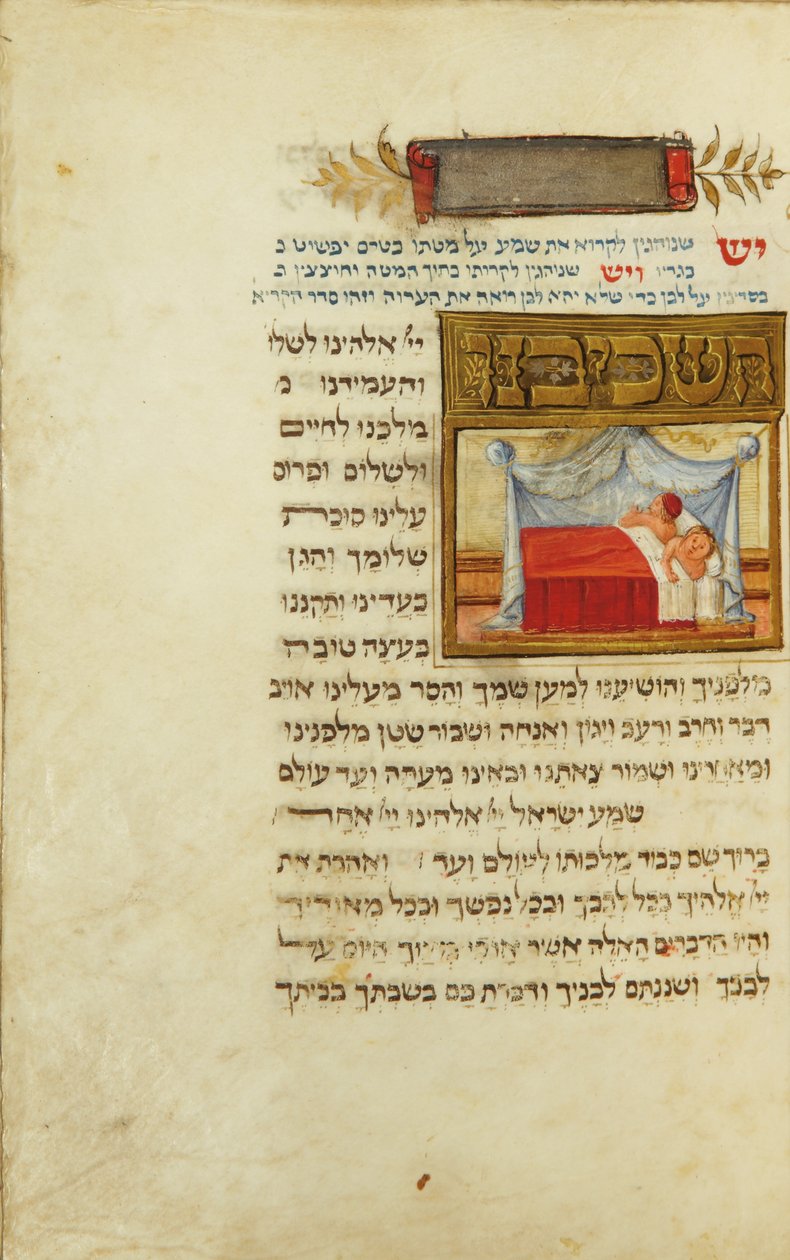 יש שנוהגין לקרוא את שמע על מטתו בטרם יפשיט ב
בגדיו ויש שניהגין לקרותו בתיך המטה וחוצצין ב
בסדינין על לבן כדי שלא יהא לבן רואה את הערוה וזהו סדר הקריא
השכיבנו
יְיָ אֱלֹהֵינוּ לְשָׁלוֹ
וְהַעֲמִידֵנוּ מ
מַלְכֵּנוּ לְחַיִּים
וּלְשָׁלוֹם וּפְרוֹס
עָלֵינוּ סוּכַּת
שְׁלוֹמָךְ וְהָגֵן
בַּעֲדֵינוּ וְתַקְּנֵנוּ
בְּעֵצָה טוֹבָה
מִלְּפָנֶיךָ וְהוֹשִׁיעֵנוּ לְמַעַן שְׁמֶךָ וְהָסֵר מֵעָלֵינוּ אוֹיֵב
דֶּבֶר וְחֶרֶב וְרָעָב וְיָגוֹן וַאֲנָחָה וּשְׁבוֹר שָׂטָן מִלְּפָנֵינוּ
וּמֵאַחֲרֵינוּ וּשְׁמוֹר צֵאתֵנוּ וּבֹאֵינוּ מֵעַתָּה וְעַד עוֹלָם
שְׁמַע יִשְׂרָאֵל יְיָ אֱלֹהֵינוּ יְיָ אֶחָד
בָּרוּךְ שֵׁם כְּבוֹד מַלְכוּתוֹ לְעוֹלָם וָעֶד וְאָהַבְתָּ אֵת
יְיָ אֱלֹהֶיךָ בְּכָל לְבָבְךָ וּבְכָל נַפְשְׁךָ וּבְכָל מְאוֹדֶיךָ
וְהָיוּ הַדְּבָרִים הָאֵלֶּה אֲשֶׁר אָנֹכִי מְצַוְּךָ הַיּוֹם עַל
לְבָבֶךָ וְשִׁנַּנְתָּם לְבָנֶיךָ וְדִבַּרְתָּ בָּם בְּשִׁבְתְּךָ בְּבֵיתֶךָ